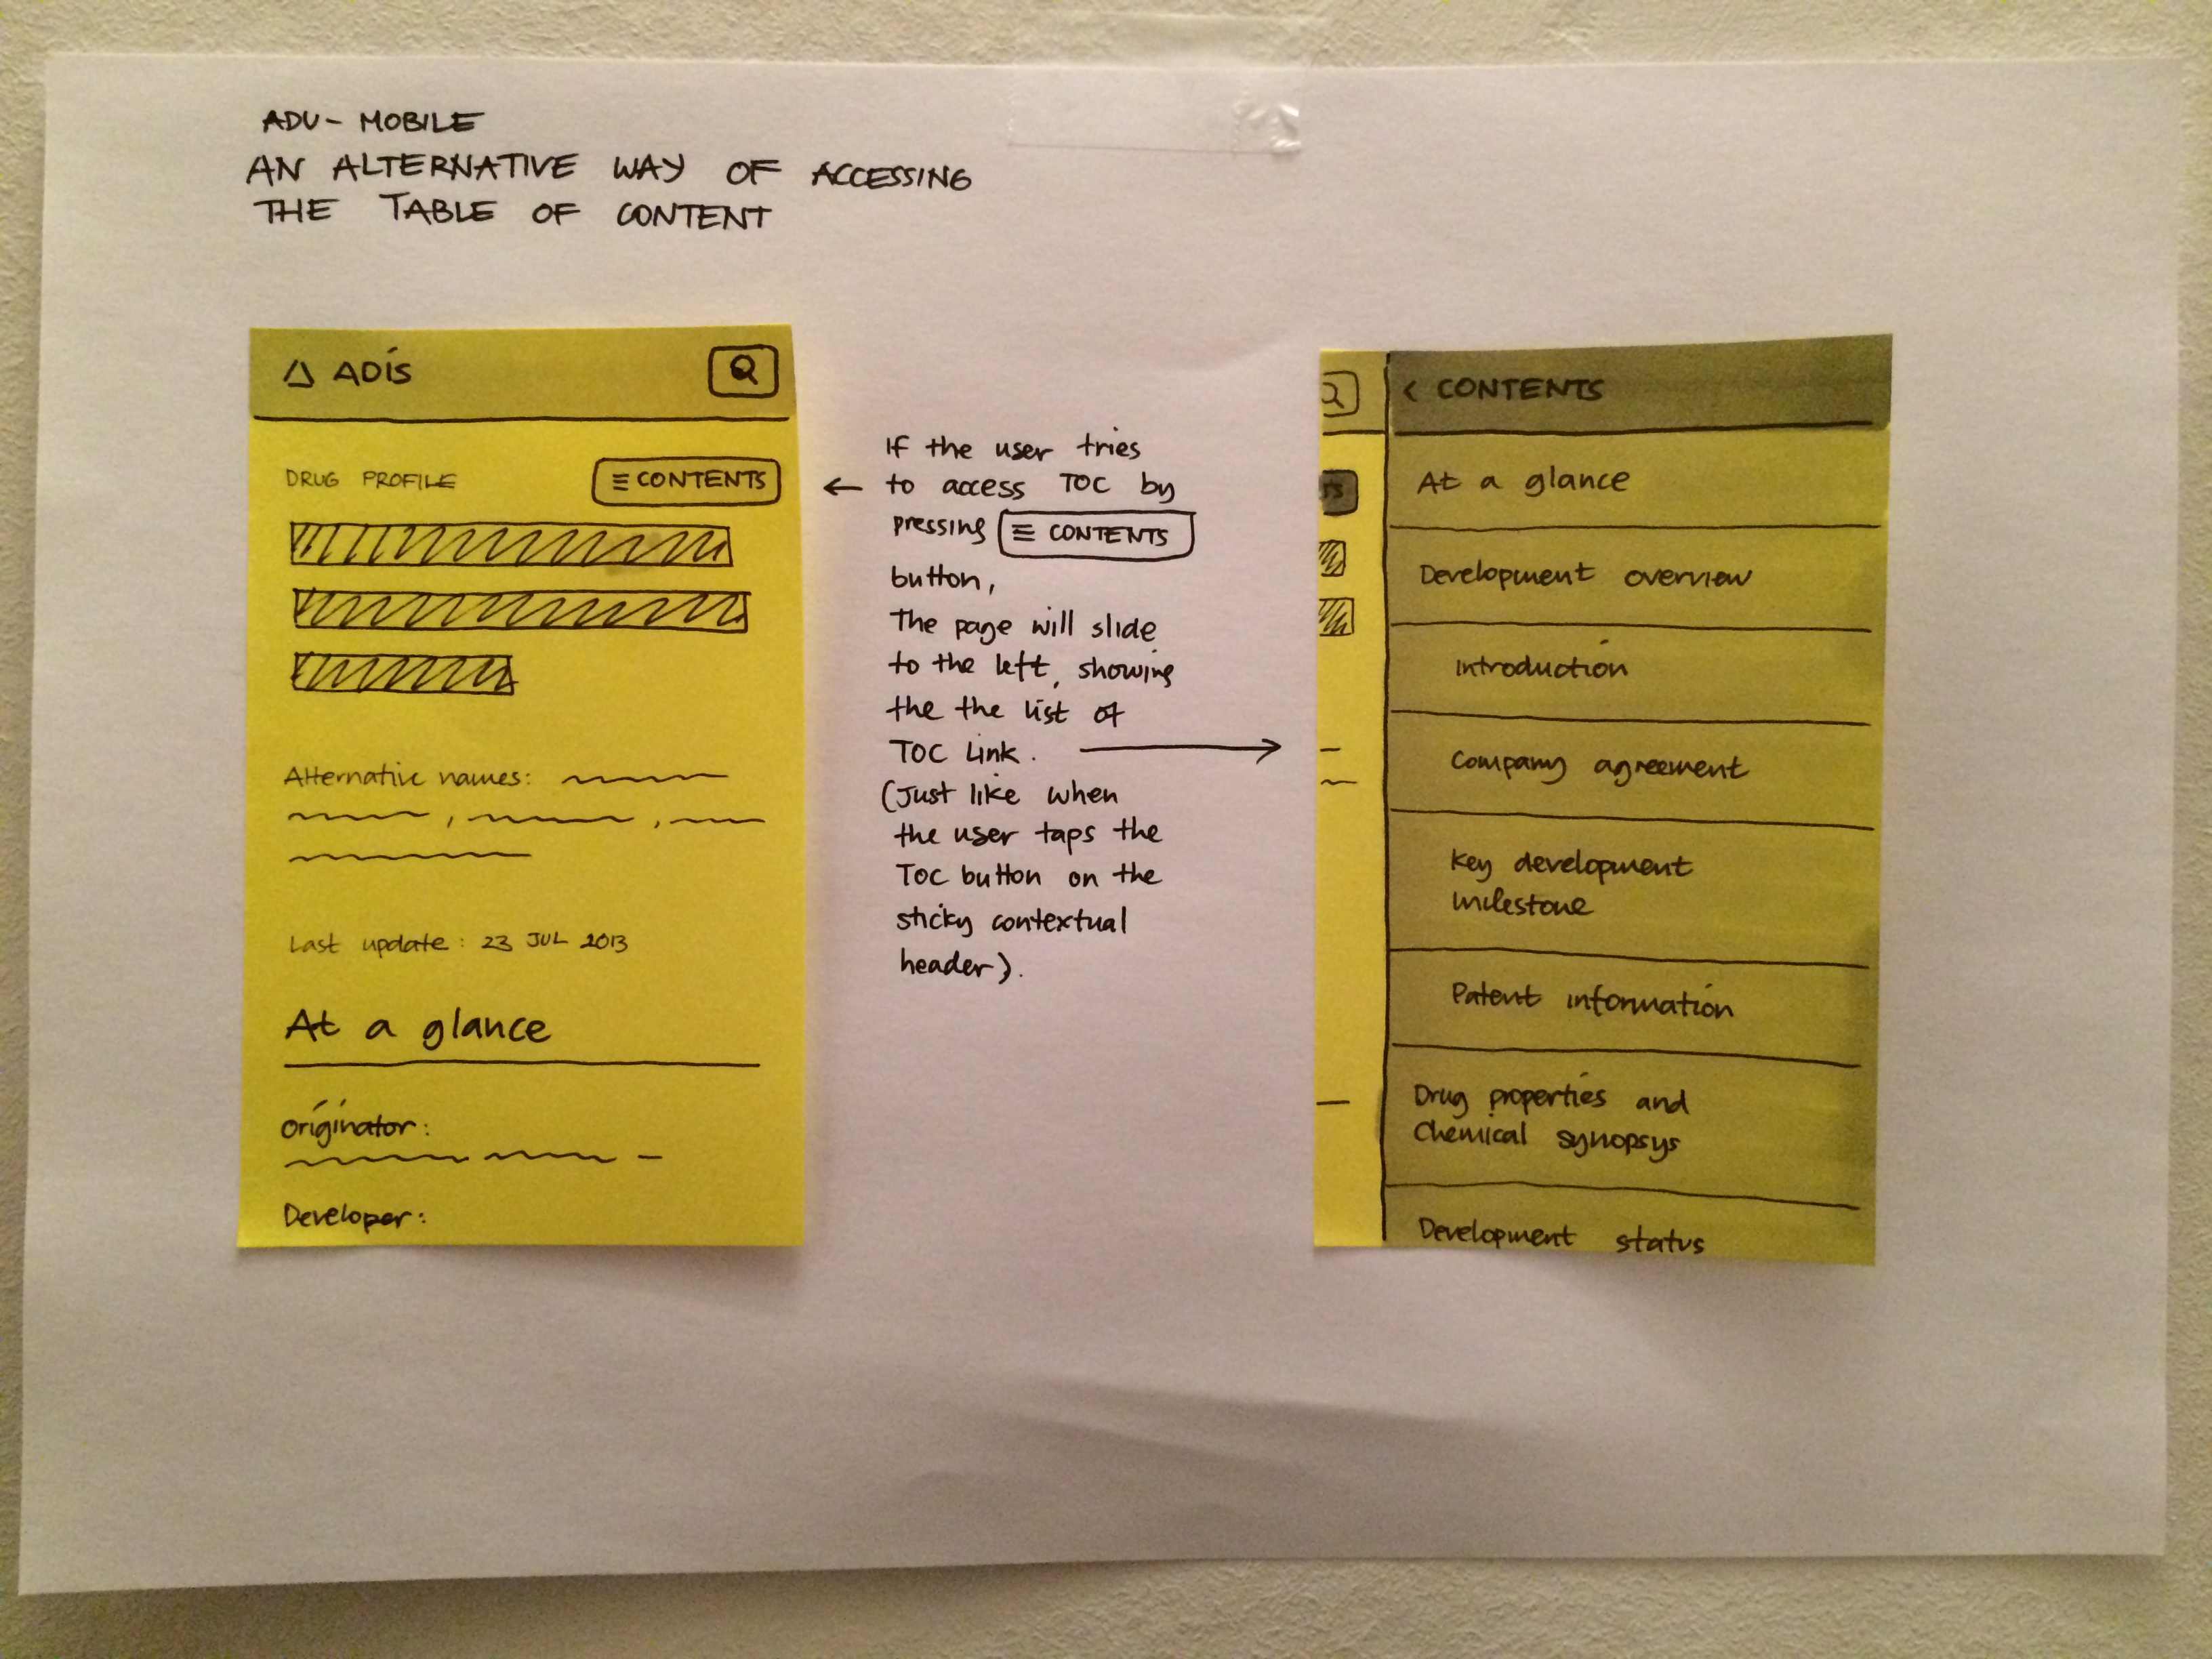 ADU - MOBILE
AN ALTERNATIVE WAY OF ACCESSING
THE TABLE OF CONTENT
ADIS
DRUG PROFILE
≡ CONTENTS
Alternative names:
Last update: 23 JUL 2013
At a glance
Originator:
Developer:
If the user tries
to access TOC by
pressing ≡ CONTENTS
button,
The page will slide
to the left, showing
the the list of
TOC Link.
(Just like when
the user taps the
TOC button on the
sticky contextual
header).
TS
< CONTENTS
At a glance
Development overview
Introduction
Company agreement
Key development
milestone
Patent information
Drug properties and
Chemical synopsys
Development status